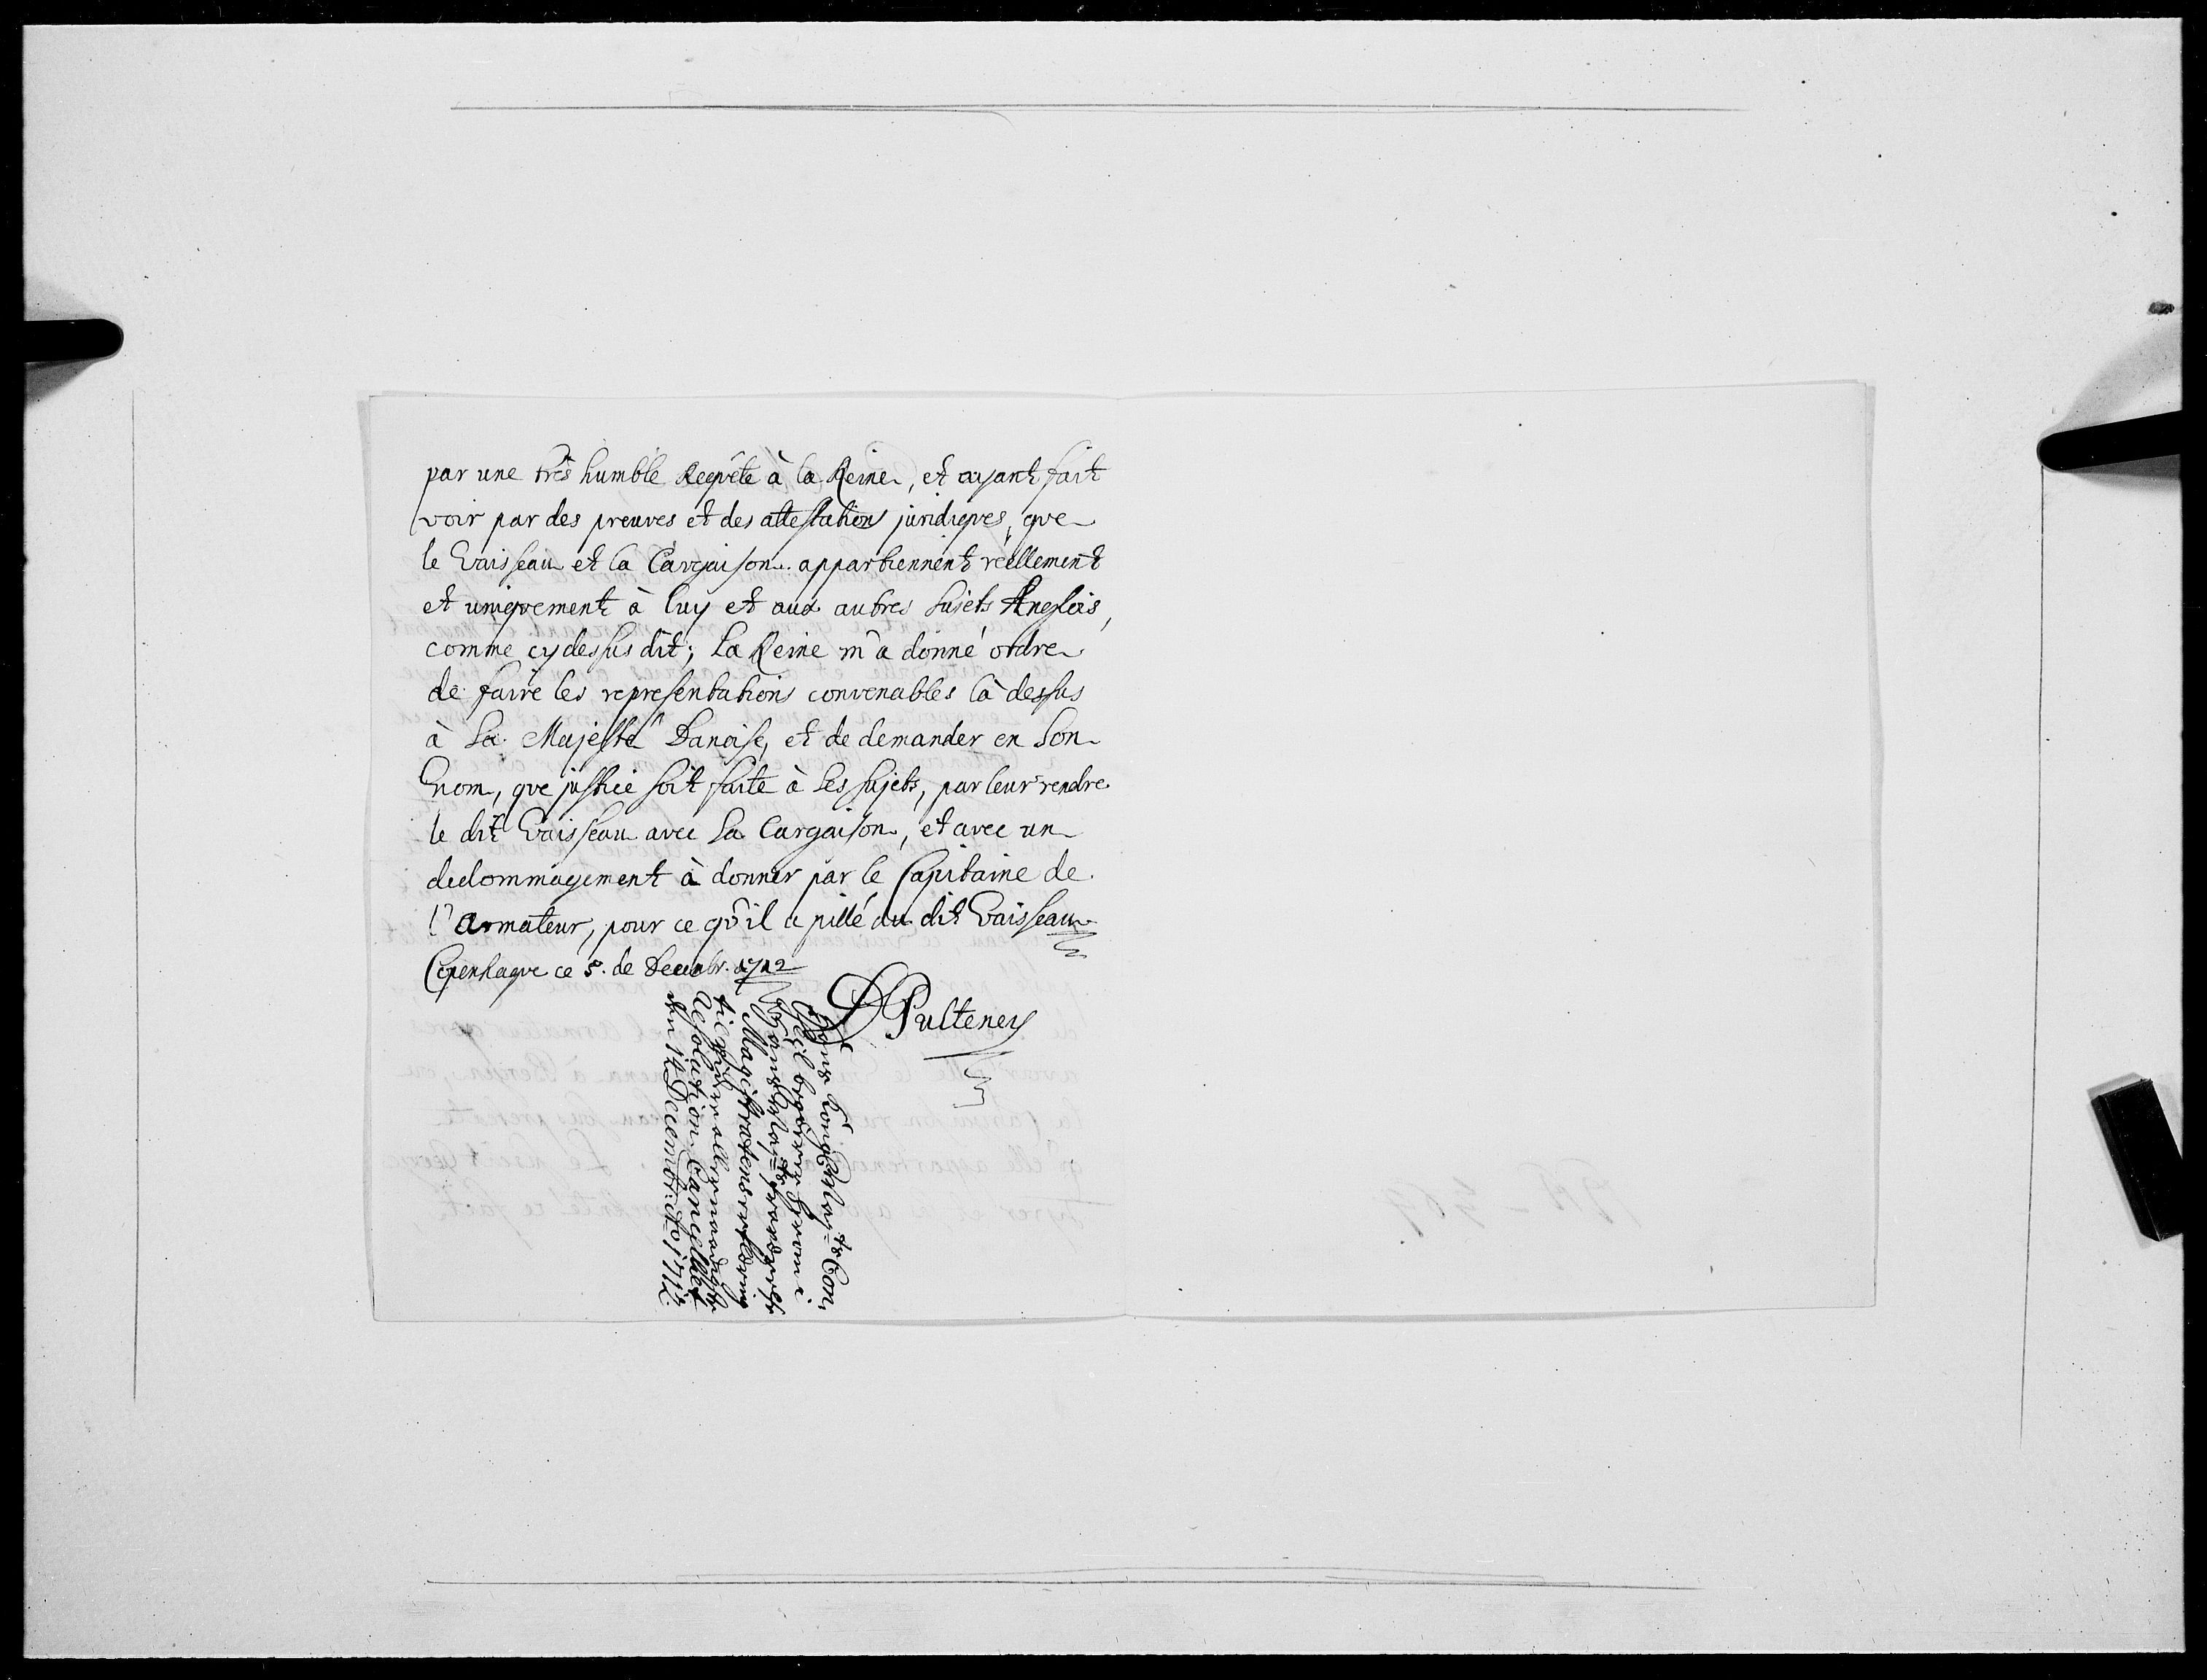 par une très humble Requête à la Reine, et ayant fait
voir par des preuves et des attestations juridiques, que
le Vaisseau et la Cargaison appartiennent réellement
et uniquement à luy et aux autres Sujets Anglois,
comme cy dessus dit; La Reine m'a donné ordre
de faire les representations convenables là dessus
à Sa Majesté Danoise, et de demander en Son
Nom, que justice soit faite à Ses Sujets, par leur rendre
le dit Vaisseau avec Sa Cargaison, et avec un
dedommagement à donner par le Capitaine de
l'Armateur, pour ce qu'il a pillé du dit Vaisseau
Copenhague ce 5. de Decembr. 1712
D Pulteney
Kong
Magistratens
Resolution Cancelliet
den 14 Decembr: Ao 1712.